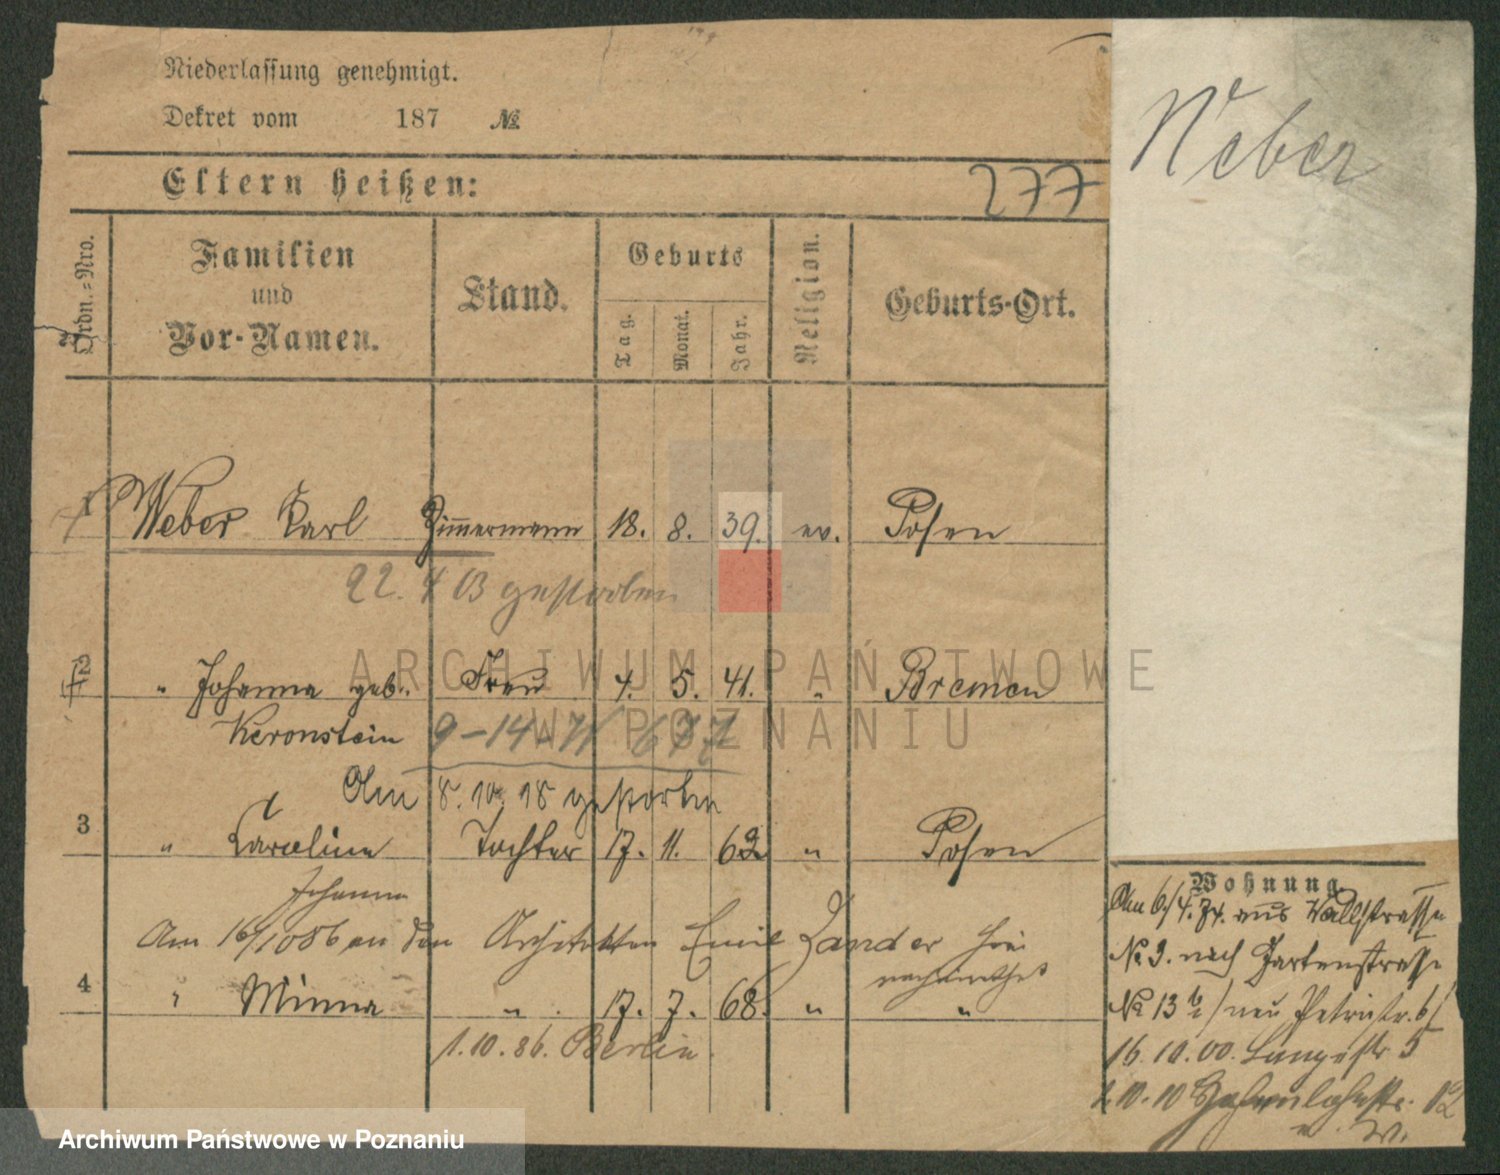 Niederlassung genehmigt.
Dekret vom 187 №
Eltern heißen:
277
Weber
Ordn.=Nro.
Familien
und
Vor-Namen.
Stand.
Geburts
Tag.
Monat.
Jahr.
Religion.
Geburts-Ort.
1 Weber Karl Zimmermann 18. 8. 39. ev. Posen
22. 4 03 gestorben
2 " Johanna geb. Frau 4. 5. 41. " Bremen
Keronstein
9-14-
Am 8. 10. 18 gestorben
3 " Caroline Tochter 17. 11. 62 " Posen
Johanna
Am 16/10 86 an den Architekten Emil Zander hier
verheirathet
4 " Minna " 17. 7. 68. " "
1.10.86. Berlin.
Wohnung.
Am 6./4. 74. aus Wallstrasse
№ 3. nach Gartenstrasse
№ 13 b / neu Petristr. 6/
16. 10. 00. Langestr. 5
1.10.10 12
ARCHIWUM PAŃSTWOWE
W POZNANIU
Archiwum Państwowe w Poznaniu